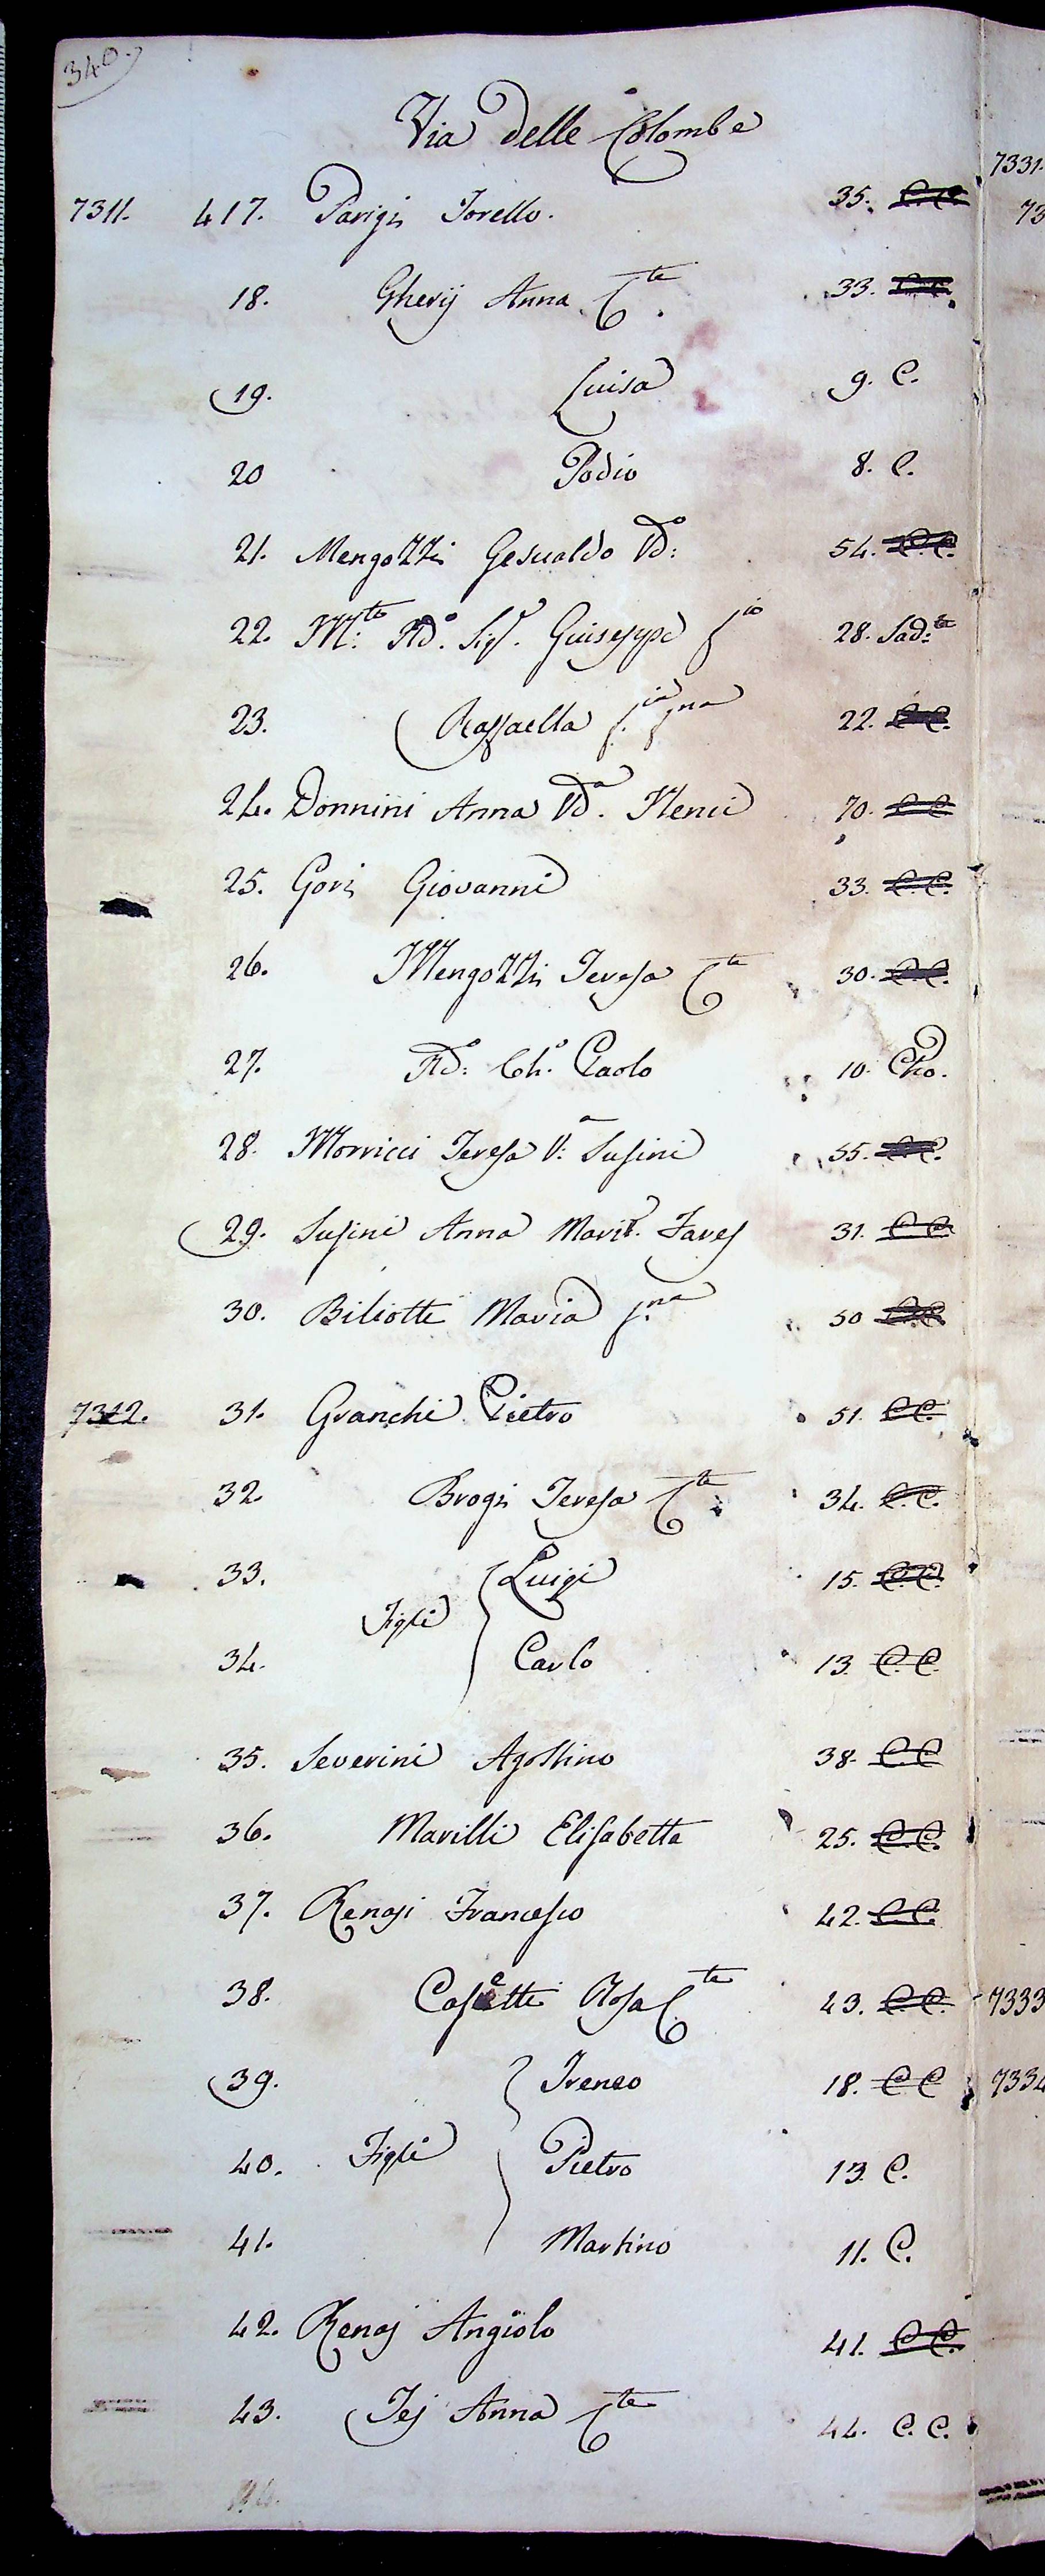 340.
Via delle Colombe
7311. 417. Parigi Torello. 35. C.C.
18. Gherij Anna Cte. 33. C.C.
19. Luisa 9. C.
20 Podio 8. C.
21. Mengozzi Gesualdo Vdo: 54. C.C.
22. M:to Rdo. Sigr. Guiseppe fio 28. Sad:te
23. Raffaella f.ia jna 22. C.C.
24. Donnini Anna Vda. Nenci 70. C.C
25. Gori Giovanni 33. C.C.
26. Mengozzi Teresa Cte 30. C.C.
27. Rdo: Cho. Paolo 10. Cho.
28. Morricci Teresa V:a Susini 55. C.C.
29. Susini Anna Marit. Fares 31. C C.
30. Biliotti Maria j.na 50 C.C.
7312. 31. Granchi Pietro 51. C C.
32. Brogi Teresa Cte 34. C.C.
33. Luigi 15. C.C.
Figli
34. Carlo 13. C. C.
35. Severini Agostino 38. C C
36. Marilli Elisabetta 25. C.C.
37. Renaji Francesco 42. C C.
38. Casetti Rosa Cte 43. C C.
39. Ireneo 18. C C
40. Figli Pietro 13. C.
41. Martino 11. C.
42. Renaj Angiolo 41. C C.
43. Tej Anna Cte 44. C. C.
7331.
73
7333
7334